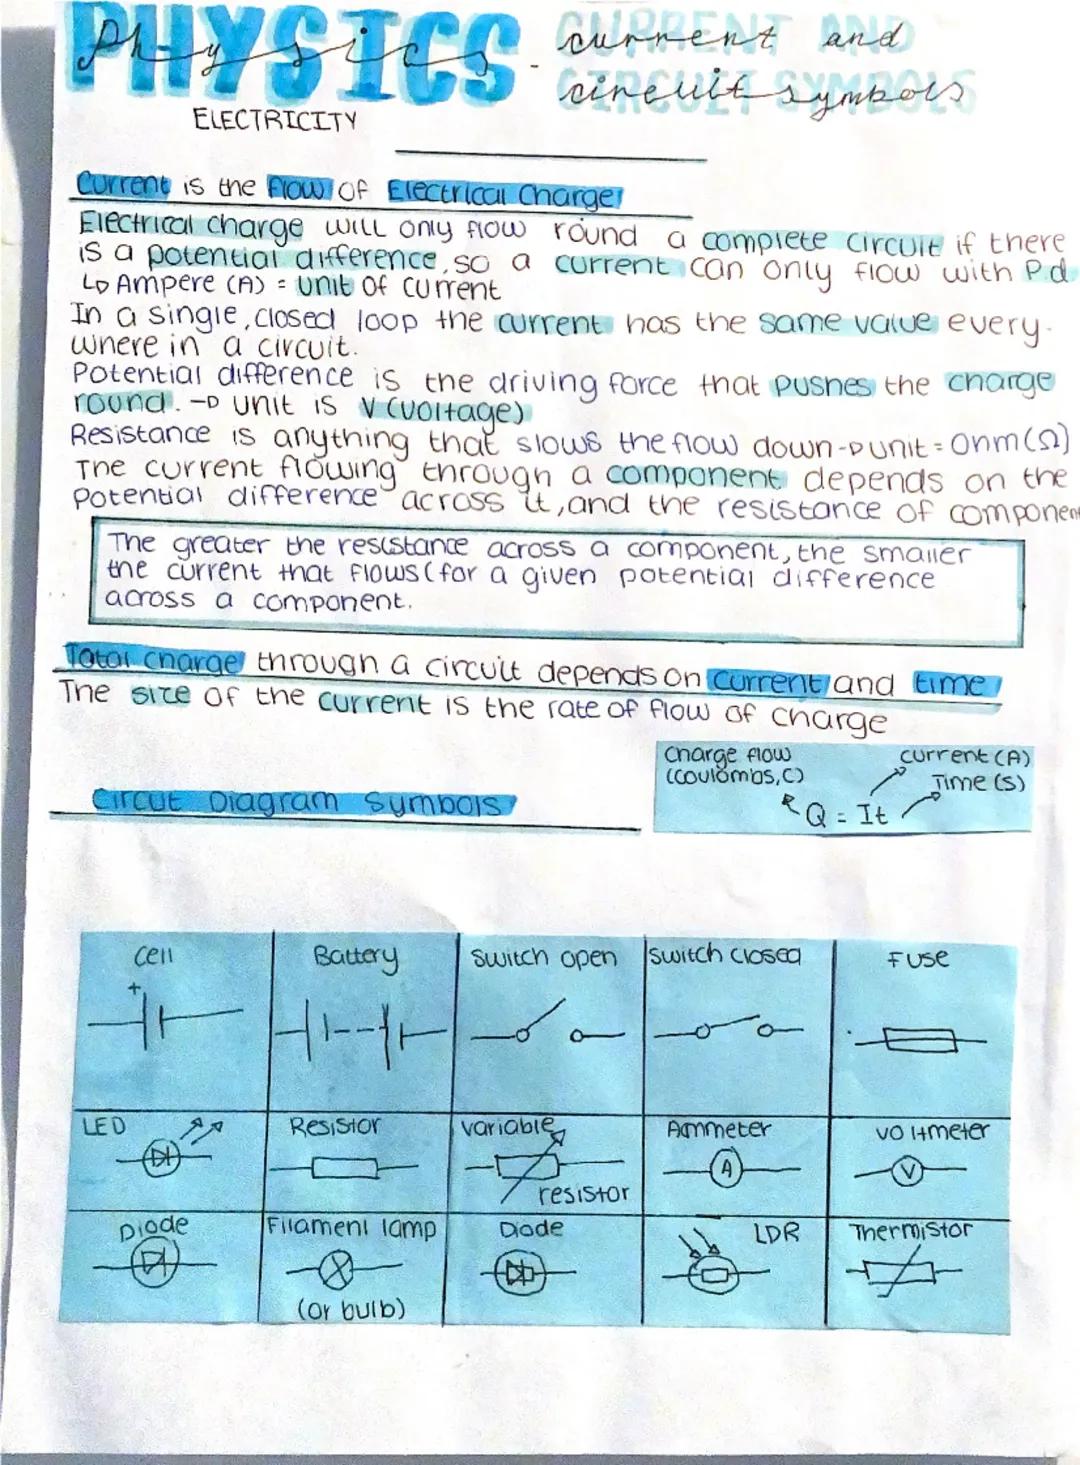 PHYSICS - CURRENT AND
Physics current and
CIRCUIT SYMBOLS
circuit symbols
ELECTRICITY
Current is the flow of Electrical Charge
Electrical charge will only flow round a complete circuit if there
is a potential difference, so a current can only flow with P.d.
↳ Ampere (A) = unit of current
In a single, closed loop the current has the same value every-
where in a circuit.
Potential difference is the driving force that pushes the charge
round. → unit is V (voltage)
Resistance is anything that slows the flow down → unit = Ohm (Ω)
The current flowing through a component depends on the
potential difference across it, and the resistance of component
The greater the resistance across a component, the smaller
the current that flows (for a given potential difference
across a component.
Total charge through a circuit depends on current and time
The size of the current is the rate of flow of charge
Charge flow current (A)
(coulombs, C) Time (s)
Q = It
Circut Diagram Symbols
Cell Battery Switch open Switch closed Fuse
+
LED Resistor variable Ammeter voltmeter
A V
resistor
Diode Filament lamp Diode LDR Thermistor
(or bulb)